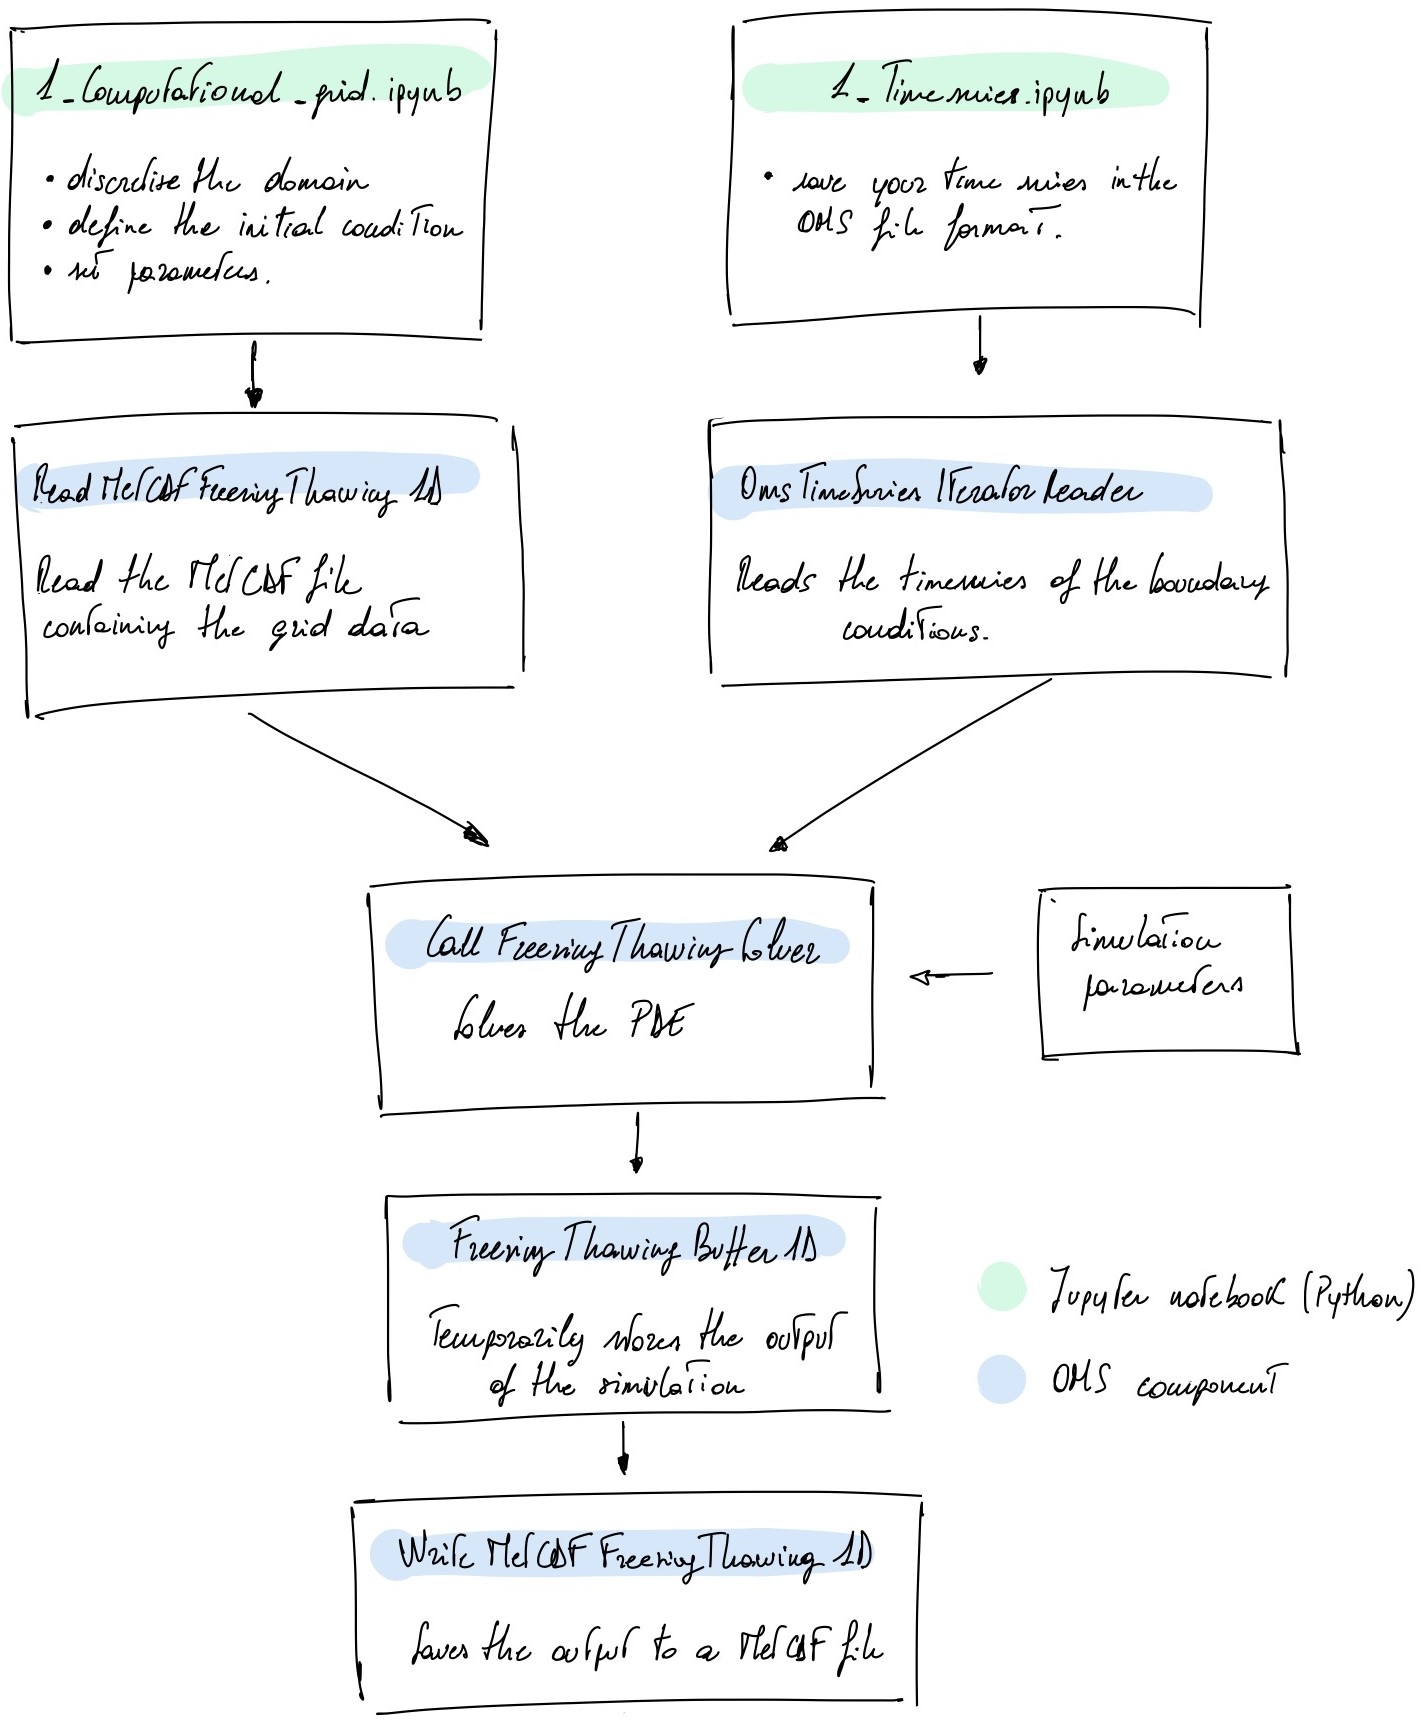 1_Computational_grid.ipynb
• discretise the domain
• define the initial condition
• set parameters.
1_Timeseries.ipynb
• save your time series in the
OMS file format.
Read NetCDF FreezingThawing 1D
Read the NetCDF file
containing the grid data
OmsTimeSeriesIteratorReader
Reads the timeseries of the boundary
conditions.
Call FreezingThawing Solver
Solves the PDE
Simulation
parameters
Freezing Thawing Buffer 1D
Temporarily stores the output
of the simulation
Jupyter notebook (Python)
OMS component
Write NetCDF FreezingThawing 1D
Saves the output to a NetCDF file